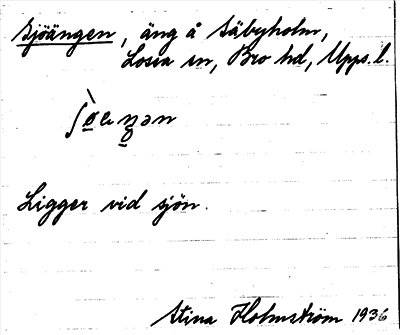 Sjöängen, äng å Säbyholm,
Låssa sn, Bro hd, Upps. l.
Ligger vid sjön.
Stina Holmström 1936